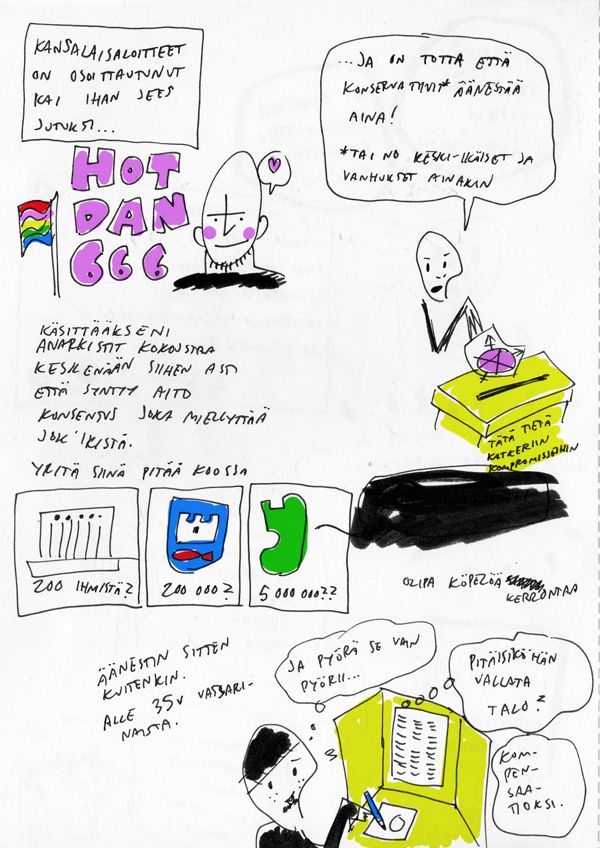 KANSALAISALOITTEET
ON OSOITTAUTUNUT
KAI IHAN JEES
JUTUKSI...
HOT
DAN
666
...JA ON TOTTA ETTÄ
KONSERVATIIVIT* ÄÄNESTÄÄ
AINA!
*TAI NO KESKI-IKÄISET JA
VANHUKSET AINAKIN
TÄTÄ TIETÄ
KATKERIIN
KOMPROMISSEIHIN
KÄSITTÄÄKSENI
ANARKISTIT KOKOUSTAA
KESKENÄÄN SIIHEN ASTI
ETTÄ SYNTYY AITO
KONSENSUS JOKA MIELLYTTÄÄ
JOK'IKISTÄ.
YRITÄ SIINÄ PITÄÄ KOOSSA
200 IHMISTÄ?
200 000?
5 000 000??
OLIPA KÖPELÖÄ
KERRONTAA
ÄÄNESTIN SITTEN
KUITENKIN.
ALLE 35V VASSARI-
NAISTA.
JA PYÖRÄ SE VAIN
PYÖRII...
PITÄISIKÖHÄN
VALLATA
TALO?
KOM-
PEN-
SAA-
TIOKSI.